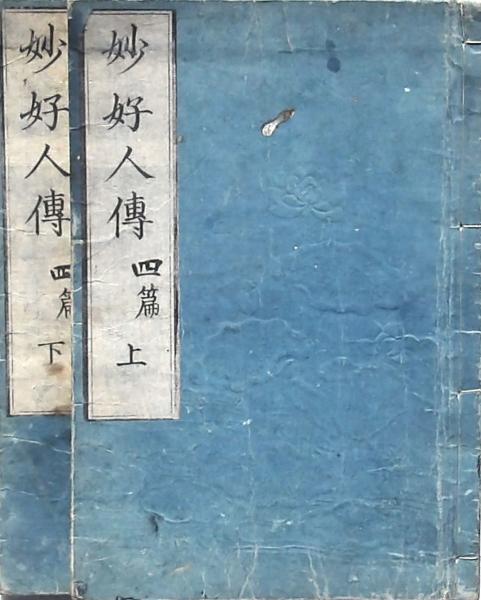 妙好人傳
四篇
上
妙好人傳
四篇
下